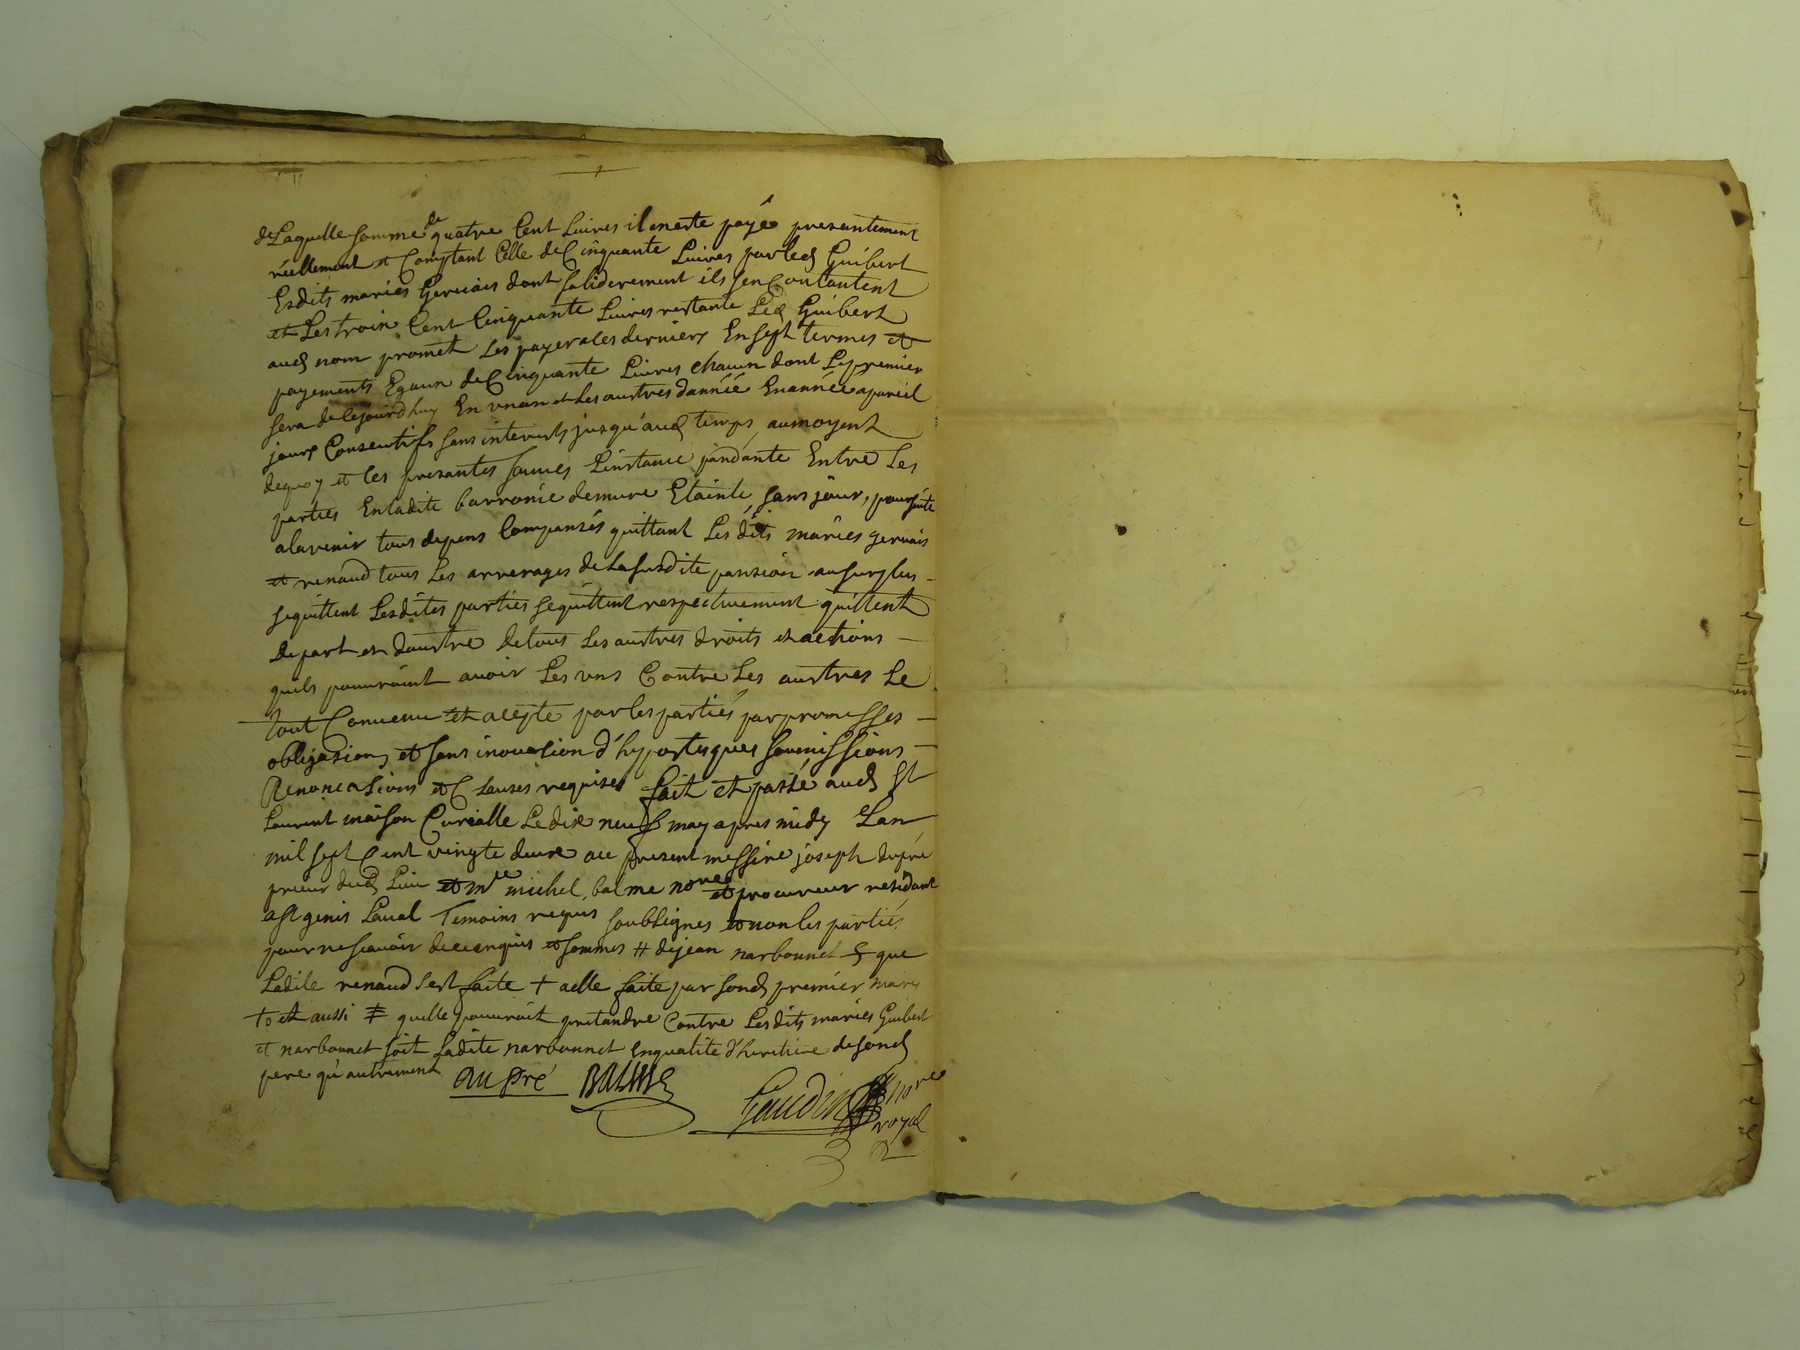 de Laquelle somme de quatre Cent Liures il en este payé presantement
réellement et Comptant Celle de Cinquante Liures par led Guibert
Esdits mariés Geruais dont soliderement ils sen Contantent
et Les trois Cent Cinquante Liures restante Led Guibert
aud nom promet Les payer a ces derniers En sept termes et
payements Egaux de Cinquante Liures chacun dont Le premier
sera de Cejourdhuy En vn an et Les austres dannéé En année a pareil
jours Consecutifs sans interuals jusqu'aud temps, aumoyent
dequoy et les presantes Linstance pandante Entre Les
parties En ladite barronie demure Etainte, sans jour, poursuite
alavenir tous depens Compansés quittant Les dits mariés geruais
et renaud tous Les arrerages de La susdite pansion au surplus
se quittent Lesdites parties se quittent respectiuement quittent
de part et daustre de tous Les austres droits et actions
quils pouuroint auoir Les vns Contre Les austres Le
tout Conuenu et acepte par les partiés par promesses
obligasions et sans inouasion d'hypotesques soumissions
Renoncasions et Clauses requises fait et passé aud St
Laurent maison Curialle Le dix neuf may apres midy Lan
mil sept Cent vingte deux presant messire joseph dupré
prieur dud Lieu et mre michel balme nore et procureur residant
a St genis Laual Temoins requis soubsignes et non les partiés
pour ne scauoir de ce enquis et sommes # dejean narbounet § que
Ladite renaud sest faite + a elle faite par sond premier mary
to et aussi quelle pouuroit pretandre Contre Lesdits mariés Guibert
et narbounet soit Ladite narbounet En qualite d'heritiere de sond
pere qu'autrement
Balme
Gaudin nore
royal